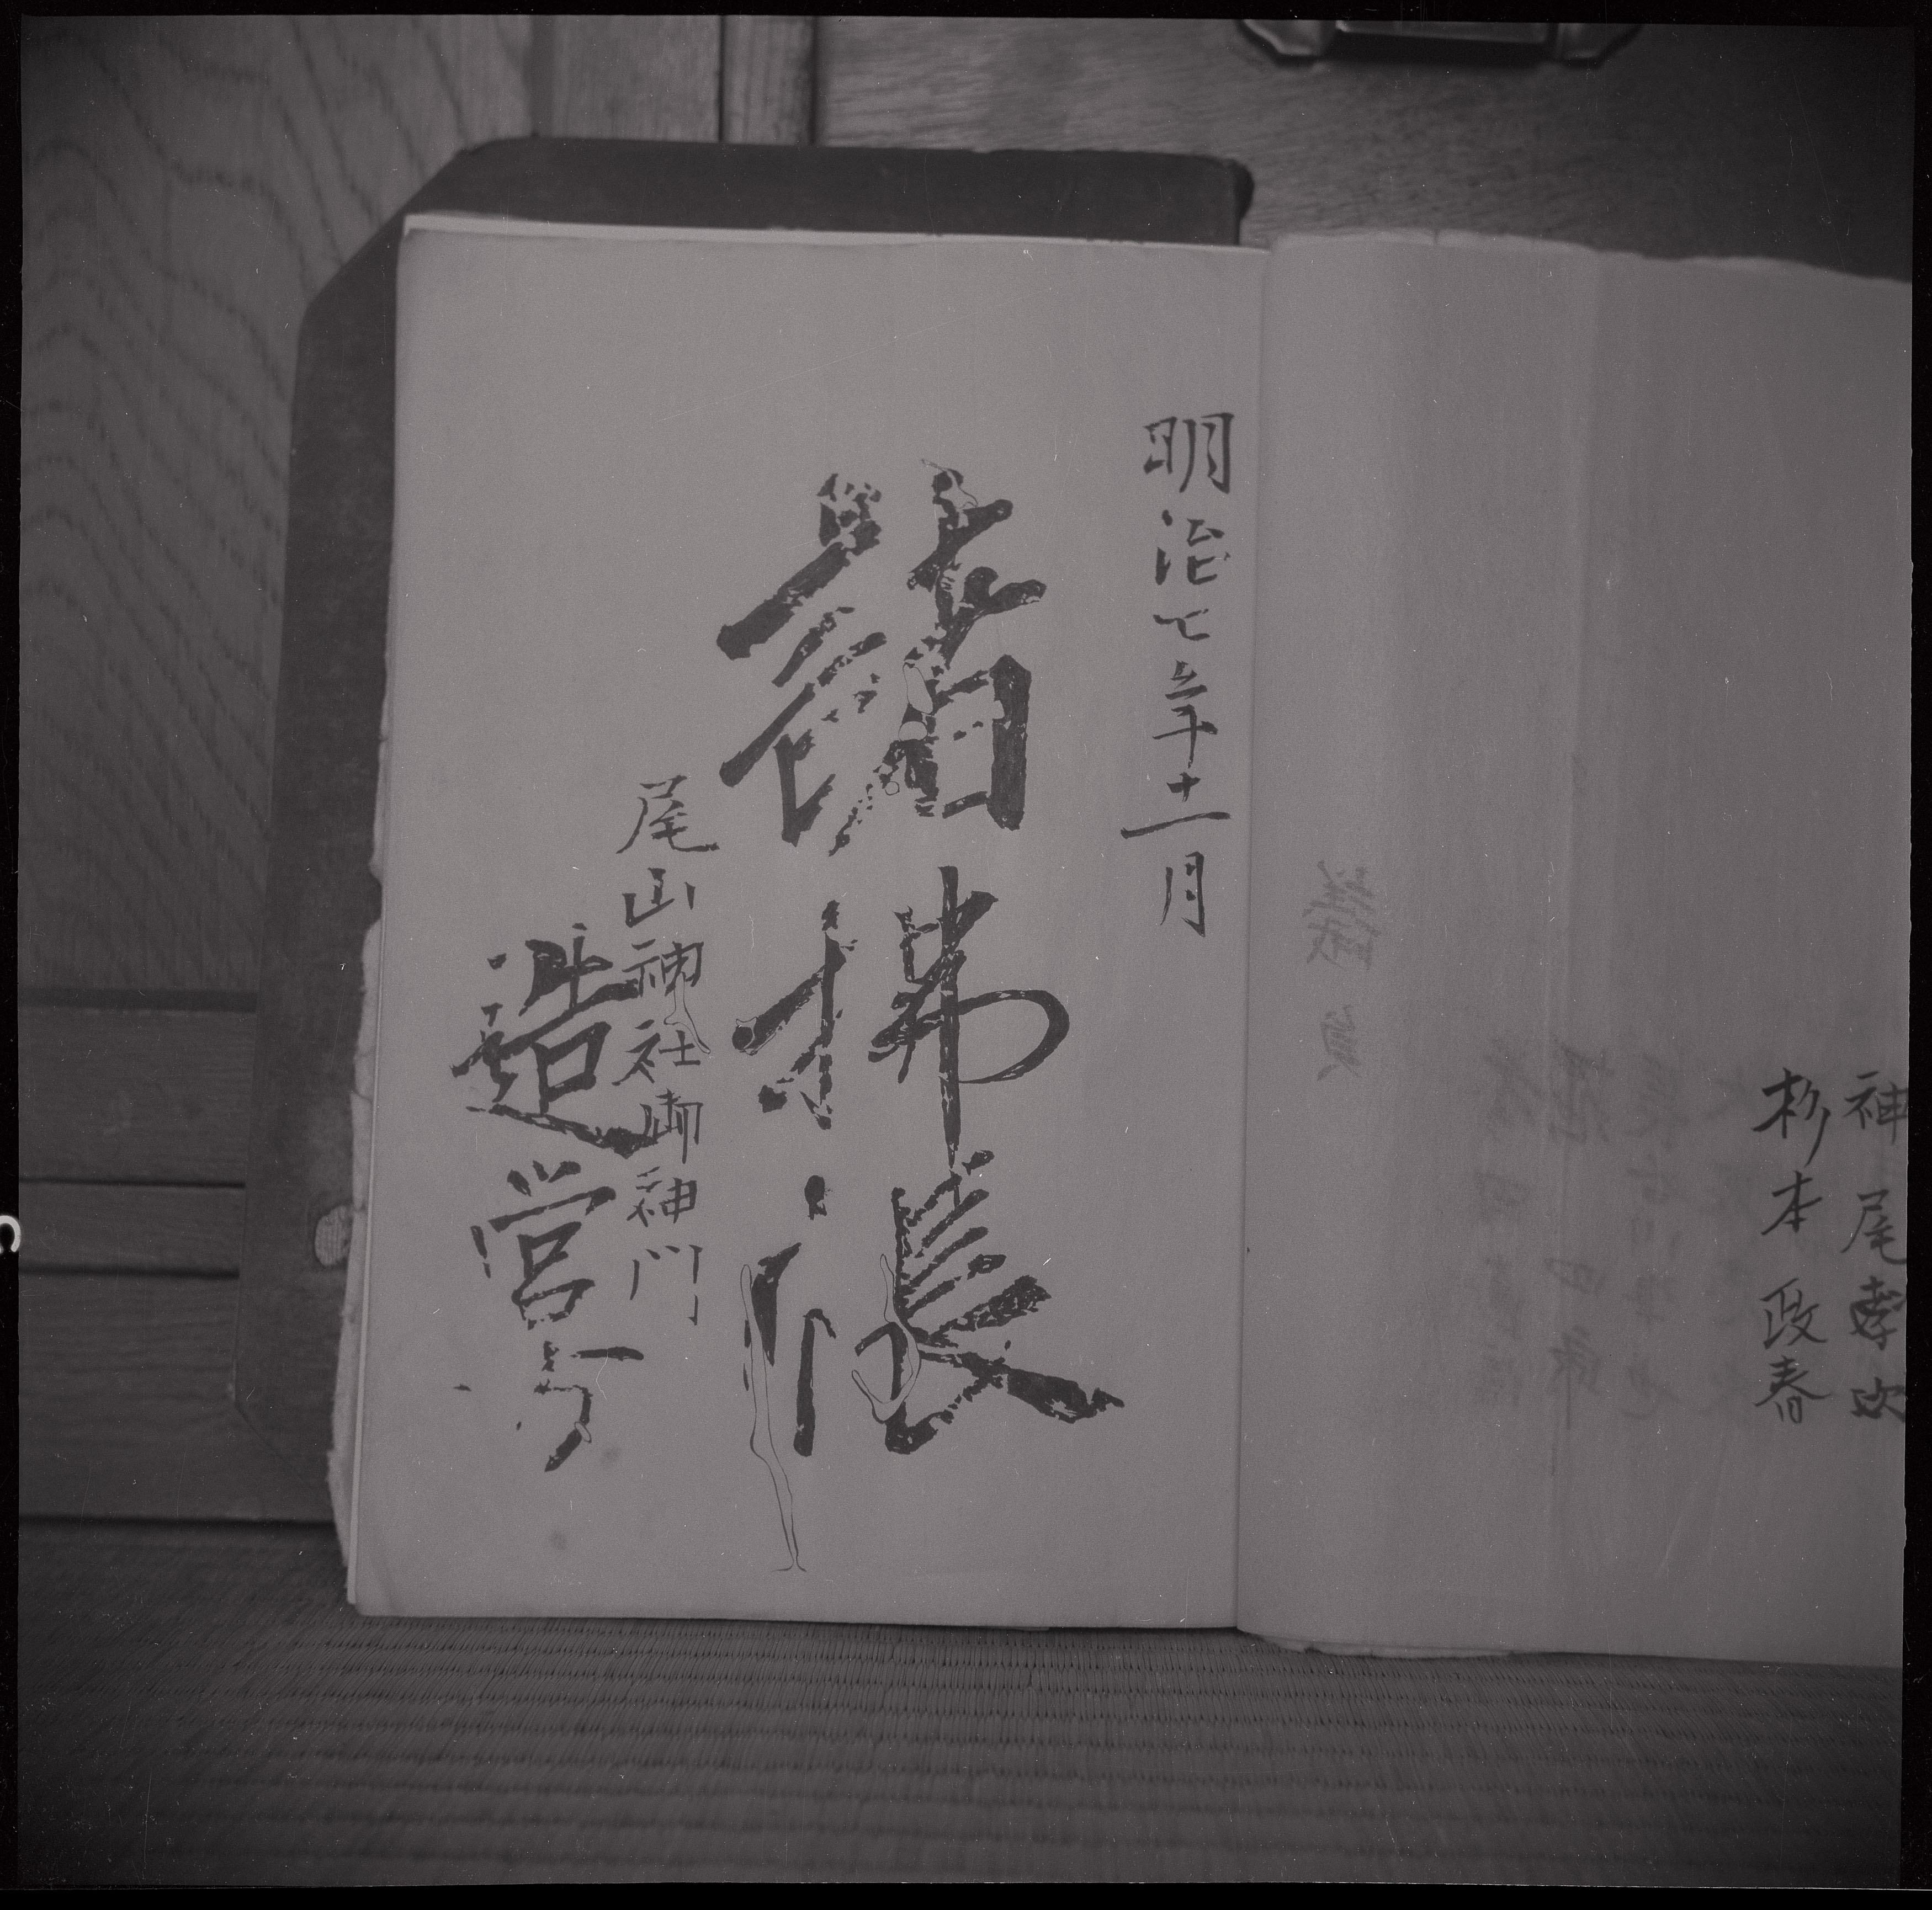 神尾孝次
杉本政春
明治七年十一月
諸拂帳
尾山神社御神門
造営方